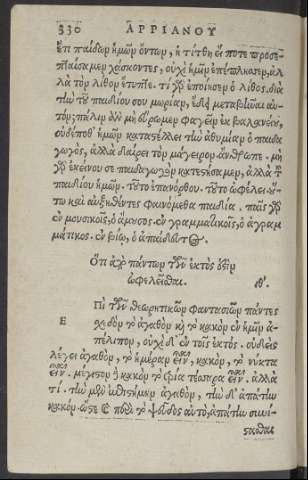 330 ΑΡΡΙΑΝΟΥ
ἔτι παίδων ἡμῶν ὄντων, ἡ τίτθη εἴ ποτε προσε-
πταίσαμεν χάσκοντες, οὐχὶ ἡμῖν ἐπέπλησσεν, ἀλ
λὰ τὸν λίθον ἔτυπτε. τί γὰρ ἐποίησεν ὁ λίθος. διὰ
τὴν τοῦ παιδίου σου μωρίαν, ἔδει μεταβῆναι αὐ-
τόν; πάλιν ἂν μὴ εὕρωμεν φαγεῖν ἐκ βαλανείου,
οὐδέποθ' ἡμῶν καταστέλλει τὴν ἐθυμίαν ὁ παιδα
γωγὸς, ἀλλὰ δαίρει τὸν μάγειρον. ἄνθρωπε. μὴ
γὰρ ἐκείνου σε παιδαγωγὸν κατεστήσαμεν, ἀλλὰ τοῦ
παιδίου ἡμῶν. τοῦτο ἐπανόρθου. τοῦτο ὠφέλει. οὕ-
τω καὶ αὐξηθέντες φαινόμεθα παιδία. παῖς γὰρ
ἐν μουσικοῖς, ὁ ἄμουσος. ἐν γραμματικοῖς, ὁ ἀγράμ
μάτικος. ἐν βίῳ, ὁ ἀπαίδευτος.
Ὅτι ἀπὸ πάντων τῶν ἐκτὸς ἔστιν
ὠφελεῖσθαι. ιθ'.
Ε Πὶ τῶν θεωρητικῶν φαντασιῶν πάντες
σχεδὸν τὸ ἀγαθὸν καὶ τὸ κακὸν ἐν ἡμῖν ἀ-
πέλιπον, οὐχὶ δ' ἐν τοῖς ἐκτός. οὐδεὶς
λέγει ἀγαθὸν, τὸ ἡμέραν εἶναι, κακὸν, τὸ νύκτα
εἶναι. μέγιστον δὲ κακὸν τὸ τρία τέσσαρα εἶναι. ἀλλὰ
τί. τὴν μὲν ἐπιστήμην ἀγαθὸν, τὴν δ' ἀπάτην
κακόν. ὥστε καὶ περὶ τὸ ψεῦδος αὐτὸ, ἀπάτην συνί-
στασθαι